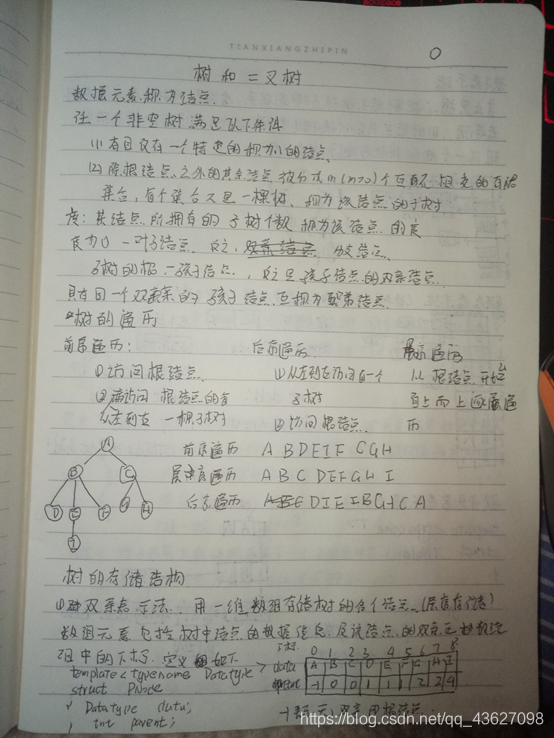 TIANXIANGZHIPIN
树 和 二叉树
数据元素称为结点
任一个非空树满足以下条件
(1) 有且仅有一个特定的称为 的结点
(2) 除根结点之外的其余结点被分成m(m>0)个互不相交的有限
集合,每个集合又是一棵树,称为该结点的子树
度:某结点所拥有的子树个数称为该结点的度
度为0 - 叶子结点 反之, 分支结点
子树的根 - 孩子结点, 反之是孩子结点的双亲结点
具有同一个双亲的孩子结点互称为兄弟结点
树的遍历
前序遍历: 后序遍历 层序遍历
①访问根结点 ①从左到右访问每一个 从根结点开始
② 访问根结点的 子树 自上而上逐层遍
从左到右一棵子树 ②访问根结点 历
A
前序遍历 A B D E I F C G H
B C 层序遍历 A B C D E F G H I
D E F G H 后序遍历 E D I E I B G H C A
I
树的存储结构
① 双亲表示法 用一维数组存储树的各个结点 (层序存储)
数组元素包括树中结点的数据信息及该结点的双亲在数组
中的下标 定义 如下 下标 0 1 2 3 4 5 6 7 8
template <typename Datatype> data A B C D E F G H I
struct PNode parent -1 0 0 1 1 1 2 2 4
{ Datatype data;
int parent; -1表示 双亲 根结点
https://blog.csdn.net/qq_43627098